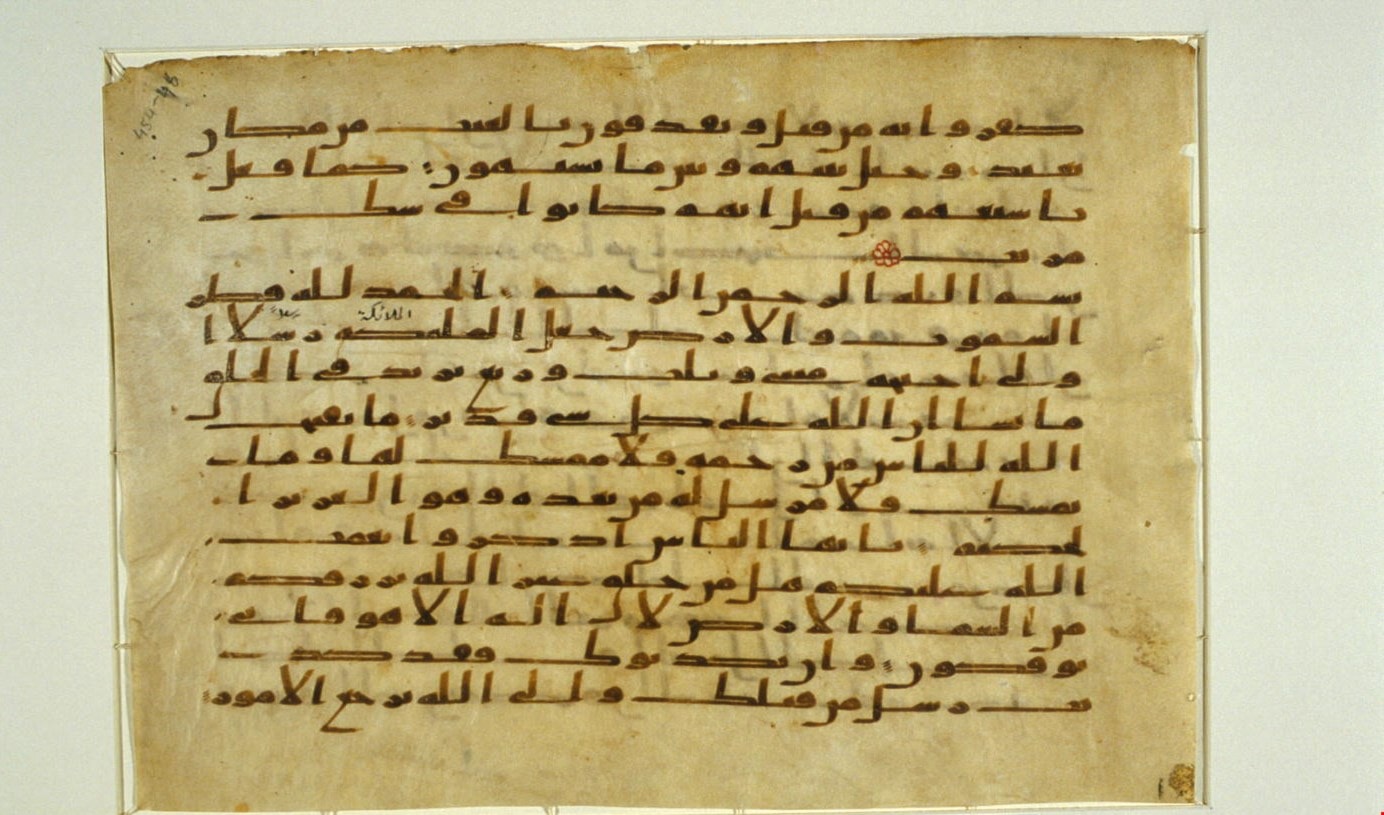 كفروا به من قبل ويقذفون بالغيب من مكان
بعيد وحيل بينهم وبين ما يشتهون كما فعل
باشيعهم من قبل انهم كانوا في شك
مريب
بسم الله الرحمن الرحيم الحمد لله فطر
الملائكة
السموت والارض جعل الملئكة رسلا ا
ولى اجنحة مثنى وثلث وربع يزيد في الخلق
ما يشا ان الله على كل شى قدير ما يفتح
الله للناس من رحمة فلا ممسك لها وما
يمسك فلا مرسل له من بعده وهو العزيز ا
لحكيم يايها الناس اذكروا نعمت
الله عليكم هل من خلق غير الله يرزقكم
من السما والارض لا اله الا هو فانى
توفكون وان يكذبوك فقد كذ
بت رسل من قبلك والى الله ترجع الامور